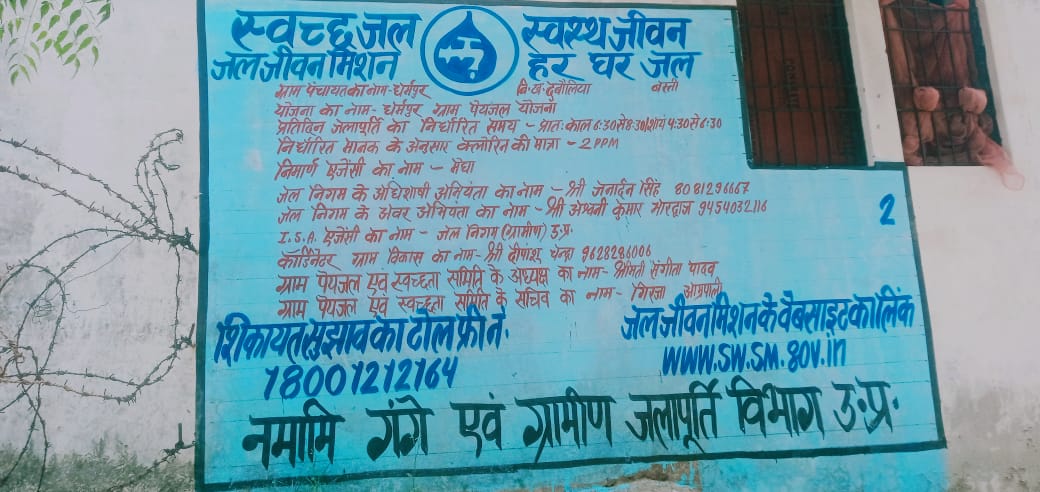 स्वच्छ जल स्वस्थ जीवन
जल जीवन मिशन हर घर जल
ग्राम पंचायत का नाम- धर्मपुर वि.ख. दुबौलिया बस्ती
योजना का नाम- धर्मपुर ग्राम पेयजल योजना
प्रतिदिन जलापूर्ति का निर्धारित समय - प्रातः काल 6:30 से 8:30 शायं 4:30 से 6:30
निर्धारित मानक के अनुसार क्लोरिन की मात्रा - 2 PPM
निमार्ण एजेंसी का नाम - मेघा
जल निगम के अधिशाषी अभियंता का नाम - श्री जनार्दन सिंह 8081296667
जल निगम के अवर अभियंता का नाम - श्री अश्वनी कुमार भारद्वाज 9454032116
I.S.A. एजेंसी का नाम - जल निगम (ग्रामीण) उ.प्र.
कॉर्डिनेटर ग्राम विकास का नाम- श्री दीपांशु चन्द्रा 9628286006
ग्राम पेयजल एवं स्वच्छता समिति के अध्यक्ष का नाम- श्रीमती संगीता यादव
ग्राम पेयजल एवं स्वच्छता समिति के सचिव का नाम - गिरजा
2
शिकायत सुझाव का टोल फ्री नं.
18001212164
जल जीवन मिशन के वेबसाइट का लिंक
www.sw.sm.gov.in
नमामि गंगे एवं ग्रामीण जलापूर्ति विभाग उ.प्र.